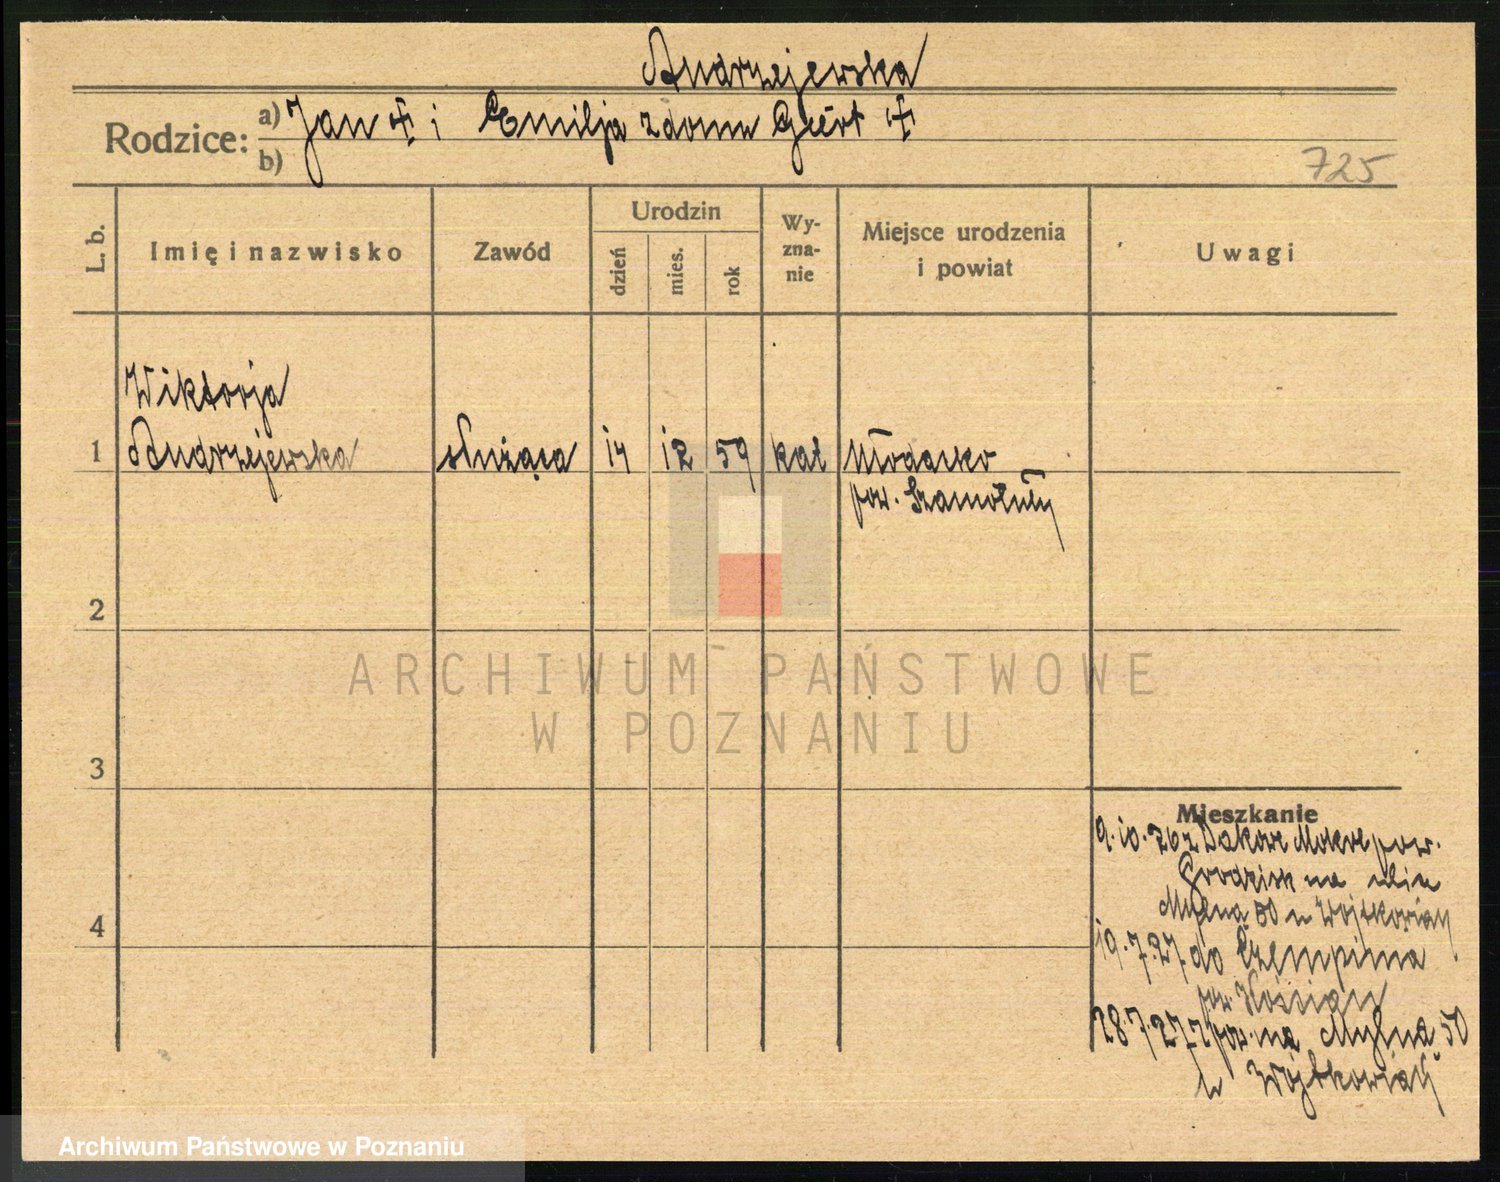 Andrzejewska
Rodzice: a) Jan ‡ i Emilja z domu ‡
b)
725
L. b.
Imię i nazwisko
Zawód
Urodzin
dzień
mies.
rok
Wy-
zna-
nie
Miejsce urodzenia
i powiat
Uwagi
Wiktorja
1 Andrzejewska służąca 14 12 59 kat Młodasko
pow. Szamotuły
2
ARCHIWUM PAŃSTWOWE
W POZNANIU
3
4
Mieszkanie
9.10.26 z Dakowe Mokre pow.
Grodzisk na
Mylna 50 u Wojtkowiak
19.7.27 do Czempinia
pow. Kościan
28.7.27 z pow. na Mylna 50
u Wojtkowiak
Archiwum Państwowe w Poznaniu